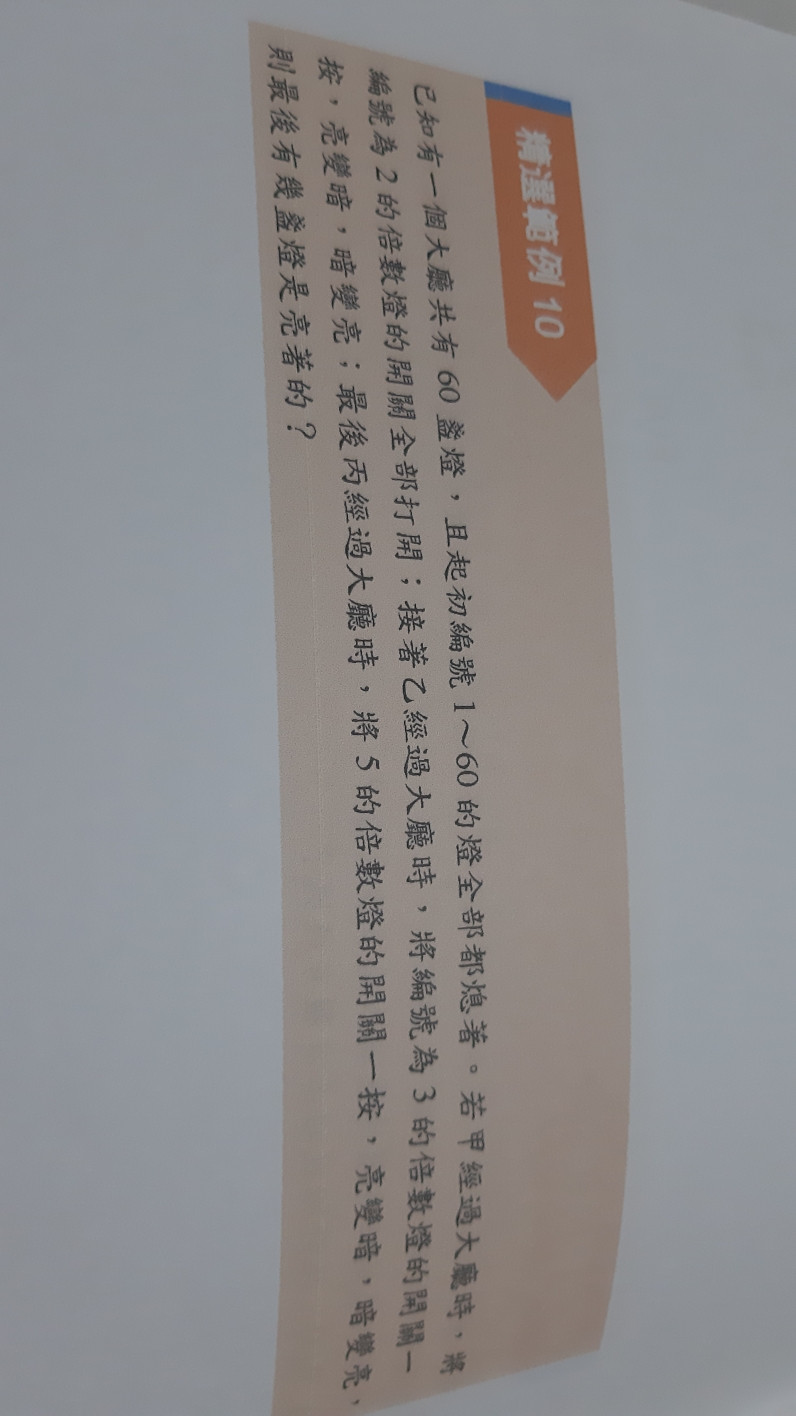 精選範例 10
已知有一個大廳共有 60 盞燈，且起初編號 1～60 的燈全部都熄著。若甲經過大廳時，將
編號為 2 的倍數燈的開關全部打開；接著乙經過大廳時，將編號為 3 的倍數燈的開關一
按，亮變暗，暗變亮；最後丙經過大廳時，將 5 的倍數燈的開關一按，亮變暗，暗變亮，
則最後有幾盞燈是亮著的？